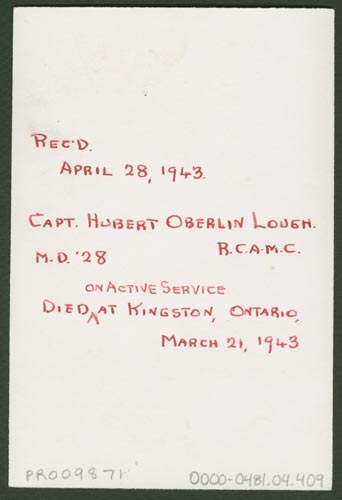 REC'D.
APRIL 28, 1943.
CAPT. HUBERT OBERLIN LOUGH.
M.D. '28 R.C.A.M.C.
ON ACTIVE SERVICE
DIED ^ AT KINGSTON, ONTARIO,
MARCH 21, 1943
PR009871 0000-0481.04.409